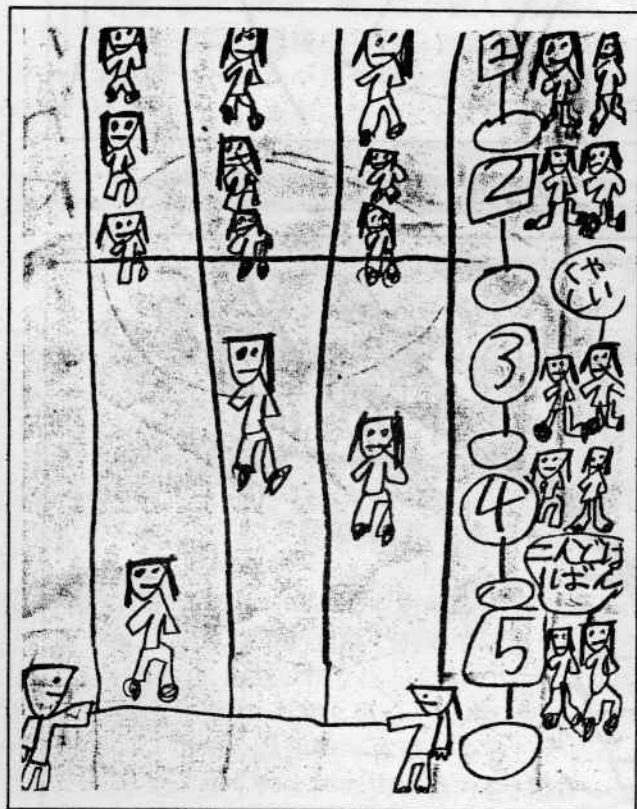 1
2
くや
しい
3
4
こんどは
1ばん
5